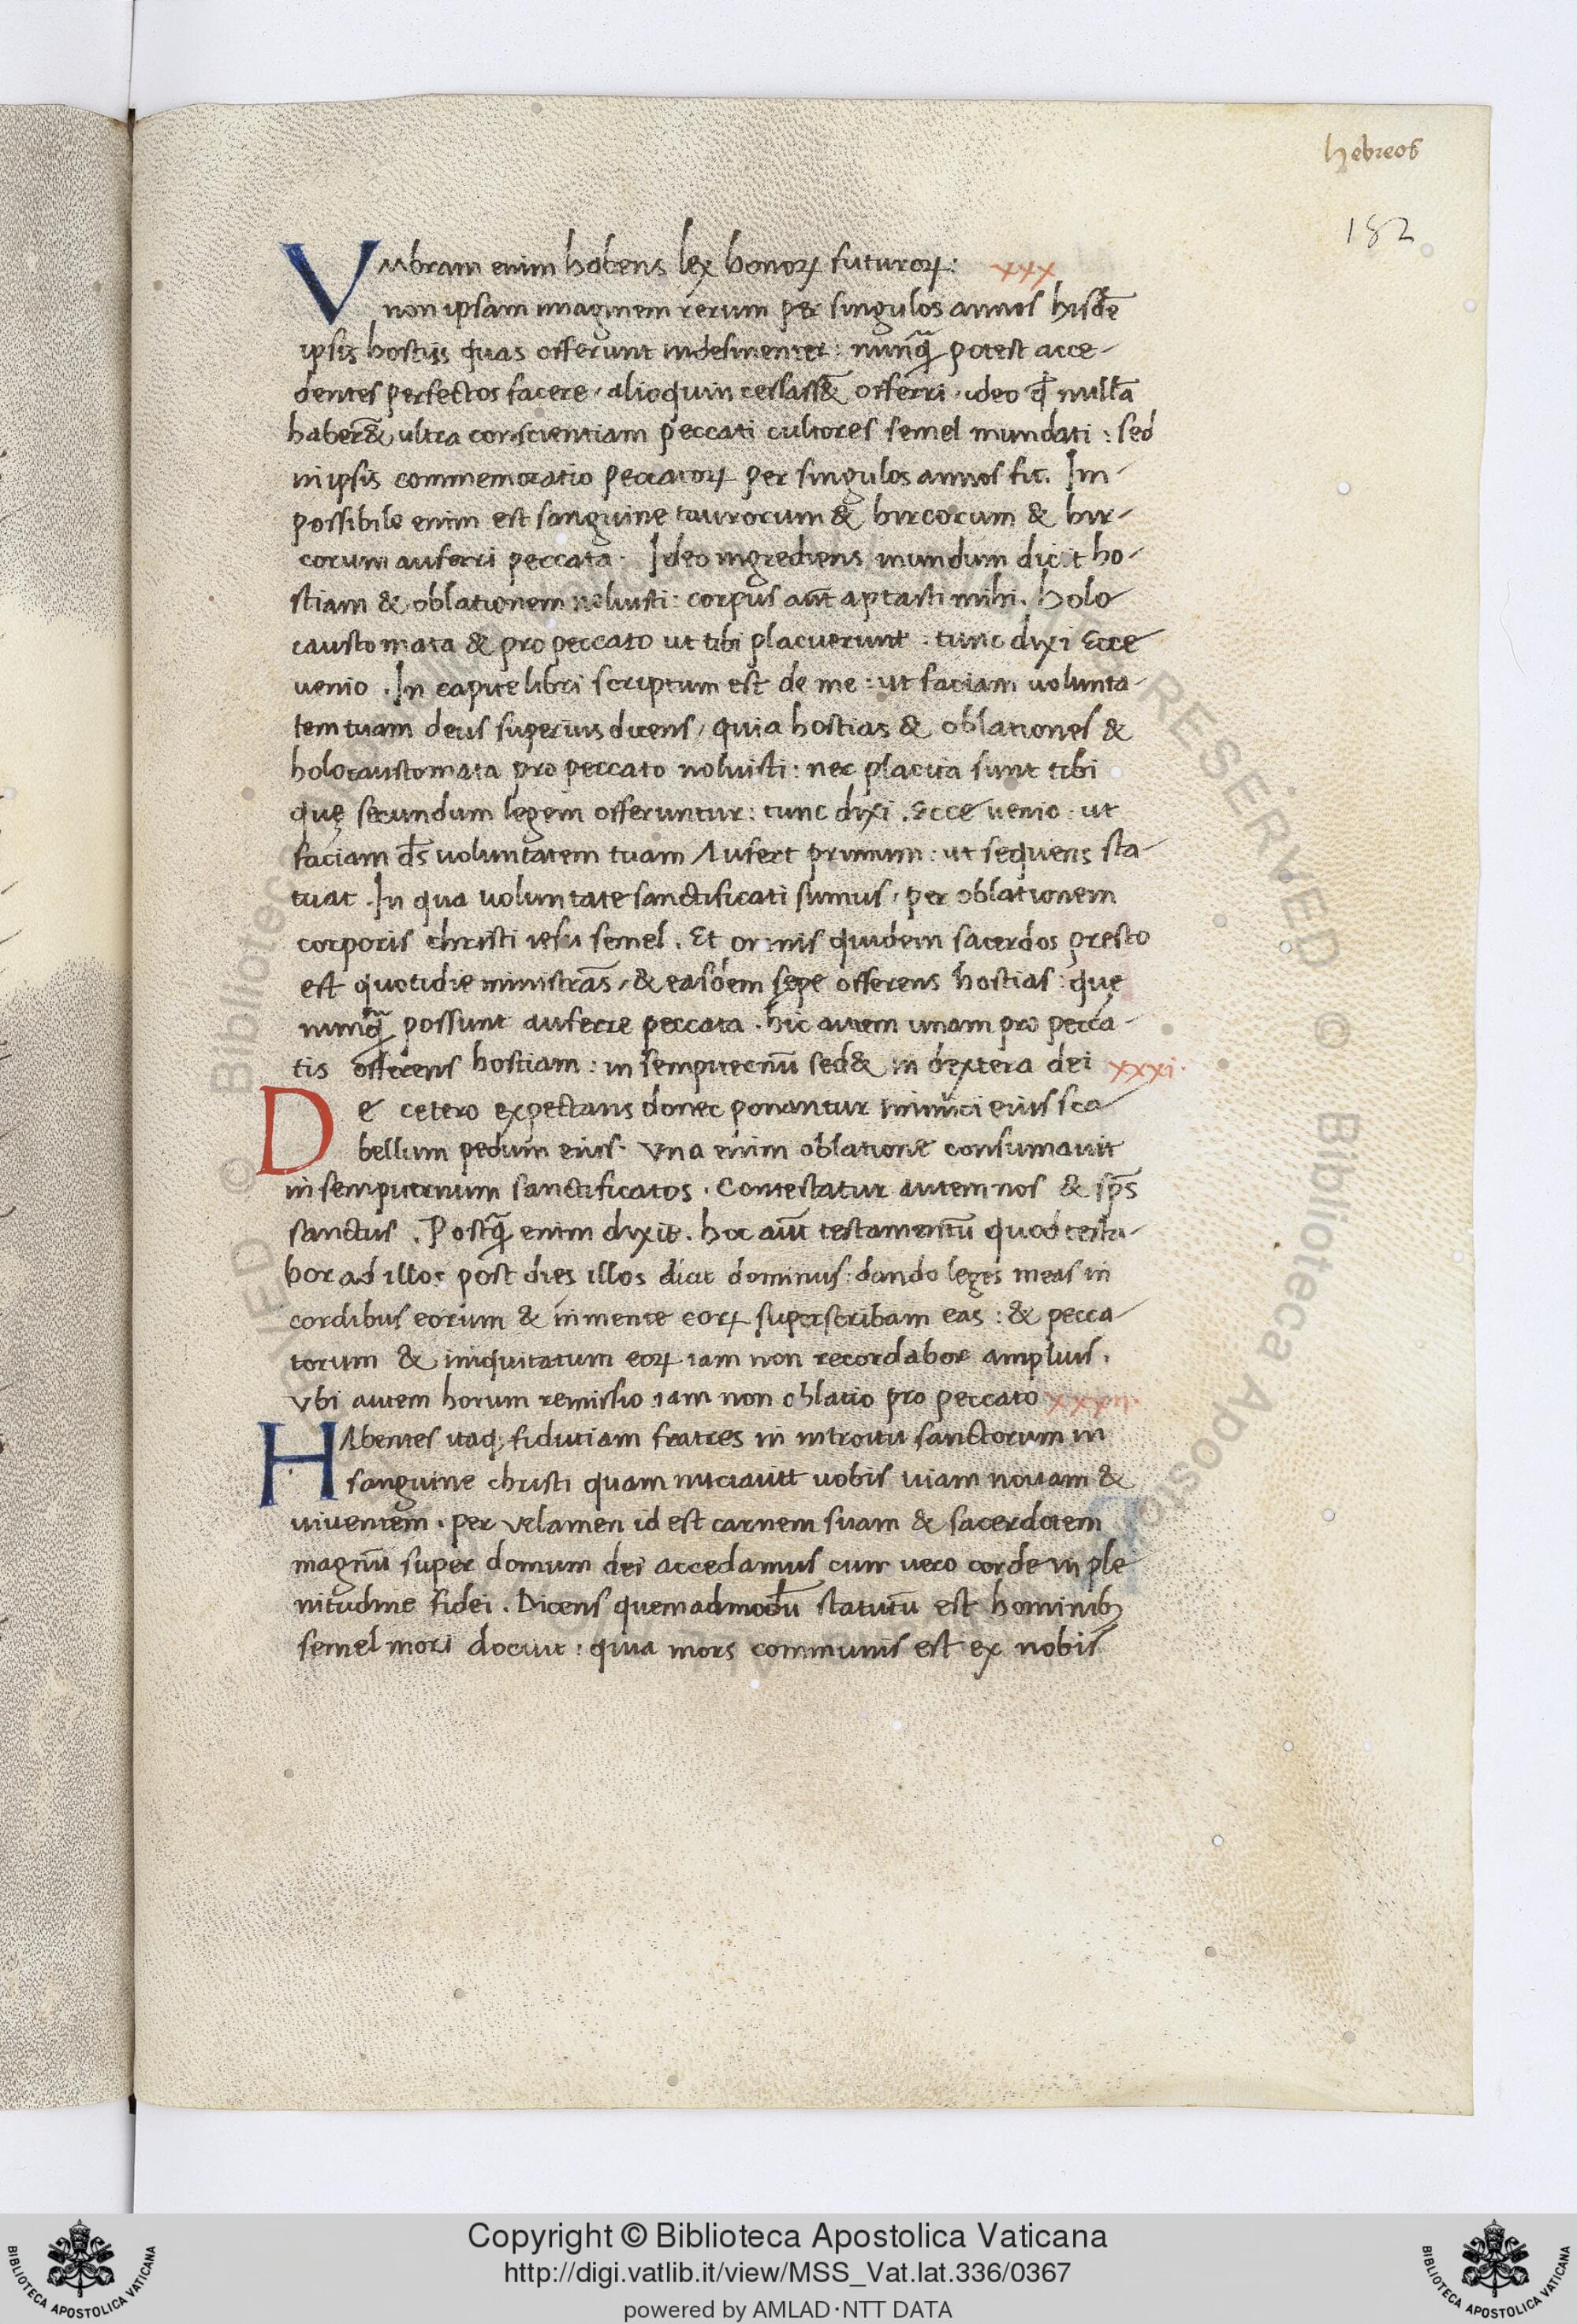 hebreos
182
VMbram enim habens lex bonoꝝ futuroꝝ: xxx
non ipsam imaginem rerum per singulos annos hisdē
ipsis hostiis quas offerunt indesinenter: nunq̄ potest acce-
dentes perfectos facere, alioquin cessass& offerri, ideo qꝫ nullā
haber& ultra conscientiam peccati cultores semel mundati: sed
in ipsis commemoratio peccatoꝝ per singulos annos fit. Im-
possibile enim est sanguine taurorum & hircorum & hir-
corum auferri peccata. Ideo ingrediens mundum dicit ho-
stiam & oblationem noluisti: corpus aūt aptasti mihi. holo
caustomata & pro peccato ut tibi placuerunt. tunc dixi Ecce
uenio. In capite libri scriptum est de me: ut faciam uolunta-
tem tuam deus superius dicens, quia hostias & oblationes &
holocaustomata pro peccato noluisti: nec placita sunt tibi
quę secundum legem offeruntur: tunc dixi. Ecce uenio. ut
faciam d̄s uoluntatem tuam Aufert primum: ut sequens sta-
tuat. In qua uoluntate sanctificati sumus, per oblationem
corporis christi iesu semel. Et omnis quidem sacerdos presto
est quotidie ministrās, & easdem sępe offerens hostias: quę
nunq̄ possunt auferre peccata. hic autem unam pro pecca-
tis offerens hostiam: in sempiternū sed& in dextera dei xxxi.
De cetero expectans donec ponantur inimici eius sca
bellum pedum eius. Vna enim oblatione consumauit
in sempiternum sanctificatos. Contestatur autem nos & sp̄s
sanctus. Postq̄ enim dixit. hoc aūt testamentū quod testa-
bor ad illos post dies illos dicit dominus: dando leges meas in
cordibus eorum & in mente eoꝝ superscribam eas: & pecca
torum & iniquitatum eoꝝ iam non recordabor amplius.
Vbi autem horum remissio iam non oblatio pro peccato xxxii.
HAbentes itaqꝫ fidutiam fratres in introitu sanctorum in
sanguine christi quam niciauit uobis uiam nouam &
uiuentem. per velamen id est carnem suam & sacerdotem
magnū super domum dei accedamus cum uero corde in ple
nitudine fidei. Dicens quemadmodū statutū est hominibꝫ
semel mori docuit: quia mors communis est ex nobis
Copyright © Biblioteca Apostolica Vaticana
http://digi.vatlib.it/view/MSS_Vat.lat.336/0367
powered by AMLAD·NTT DATA